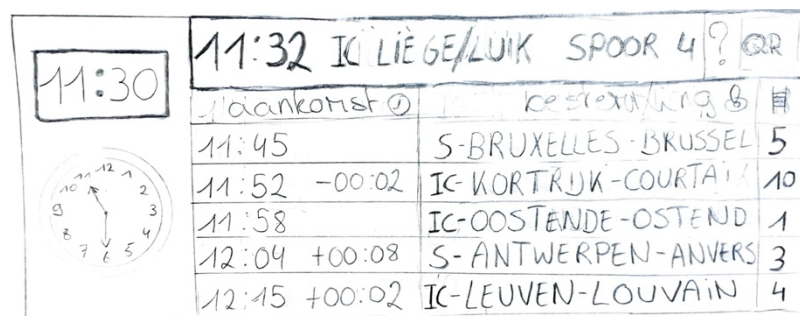 11:30
11:32 IC LIÈGE/LUIK SPOOR 4 ? QR
aankomst bestemming
11:45 S-BRUXELLES-BRUSSEL 5
11:52 -00:02 IC-KORTRIJK-COURTAI 10
11:58 IC-OOSTENDE-OSTEND 1
12:04 +00:08 S-ANTWERPEN-ANVERS 3
12:15 +00:02 IC-LEUVEN-LOUVAIN 4
12 1 2 3 4 5 6 7 8 9 10 11